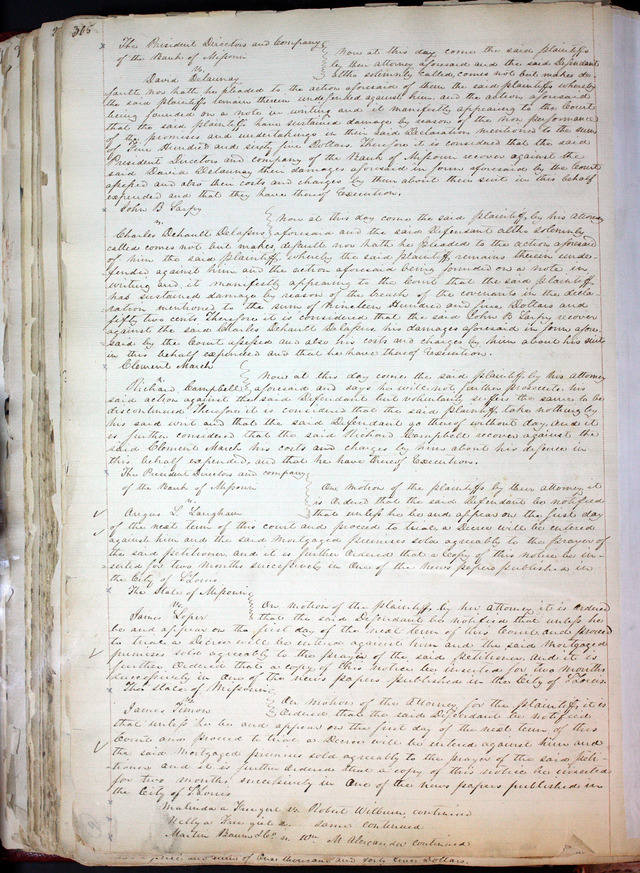 315
The President Directors and Company
of the Bank of Missouri
vs.
David Delaunay
Now at this day come the said plaintiffs
by their attorney aforesaid and the said Defendant
altho solemnly called, comes not but makes de-
fault nor hath he pleaded to the action aforesaid of them the said plaintiffs whereby
the said plaintiffs remain therein undefended against him and the action aforesaid
being founded on a note in writing and it manifestly appearing to the Court
that the said plaintiffs have sustained damage by reason of the non performance
of the promises and undertakings in their said Declaration mentioned to the sum
of Five Hundred and sixty five Dollars. Therefore it is considered that the said
President Directors and company of the Bank of Missouri recover against the
said David Delaunay their damages aforesaid in form aforesaid by the Court
assessed and also their costs and charges by them about their suit in this behalf
expended and that they have thereof Execution.
John B Sarpy
vs.
Charles Dehault Delassus
Now at this day come the said plaintiff by his attorney
aforesaid and the said Defendant altho solemnly
called comes not but makes default nor hath he pleaded to the action aforesaid
of him the said plaintiff, whereby the said plaintiff remains therein unde-
fended against him and the action aforesaid being founded on a note in
writing and it manifestly appearing to the Court that the said plaintiff
has sustained damage by reason of the breach of the covenants in the decla-
ration mentioned to the sum of Nineteen Hundred and five Dollars and
fifty two cents Therefore it is considered that the said John B Sarpy recover
against the said Charles Dehault Delassus, his damages aforesaid in form afore-
said by the Court assessed and also his costs and charges by him about his suit
in this behalf expended and that he have thereof Execution.
Clement March
vs.
Richard Campbell
Now at this day come the said plaintiff by his attorney
aforesaid and says he will not further prosecute his
said action against the said Defendant but voluntarily suffers the same to be
discontinued Therefore it is considered that the said plaintiff take nothing by
his said writ and that the said Defendant go thereof without day. And it
is further considered that the said Richard Campbell recover against the
said Clement March his costs and charges by him about his defence in
this behalf expended, and that he have thereof Execution.
The President Directors and company
of the Bank of Missouri
vs.
Angus L. Langham
On motion of the plaintiffs by their attorney it
is ordered that the said Defendant be notified
that unless he be and appear on the first day
of the next term of this court and proceed to trial, a Decree will be entered
against him and the said Mortgaged premises sold agreeably to the prayer of
the said petitioner. and it is further ordered that a Copy of this notice be in-
serted for two months successively in one of the news papers published in
the City of St Louis
The State of Missouri
vs.
James Loper
On motion of the plaintiff, by her attorney it is ordered
that the said Defendant be notified that unless he
be and appear on the first day of the next term of this Court and proceed
to trial a Decree will be entered against him and the said Mortgaged
premises sold agreeably to the prayer of the said Petitioner. And it is
further Ordered that a copy of this notice be inserted for two months
successively in one of the news papers published in the City of St Louis.
The State of Missouri
vs.
James Timon
On motion of the attorney for the plaintiff, it is
Ordered that the said Defendant be notified
that unless he be and appear on the first day of the next term of this
Court and proceed to trial a Decree will be entered against him and
the said Mortgaged premises sold agreeably to the prayer of the said peti-
tioner and it is further ordered that a copy of this notice be inserted
for two months successively in one of the news papers published in
the City of St Louis
Malinda a free girl vs. Robert Wilburn, continued
Nelly a Free girl vs. Same continued
Martin Baum &Co vs. Wm. M Alexander continued
one thousand and forty seven Dollars.